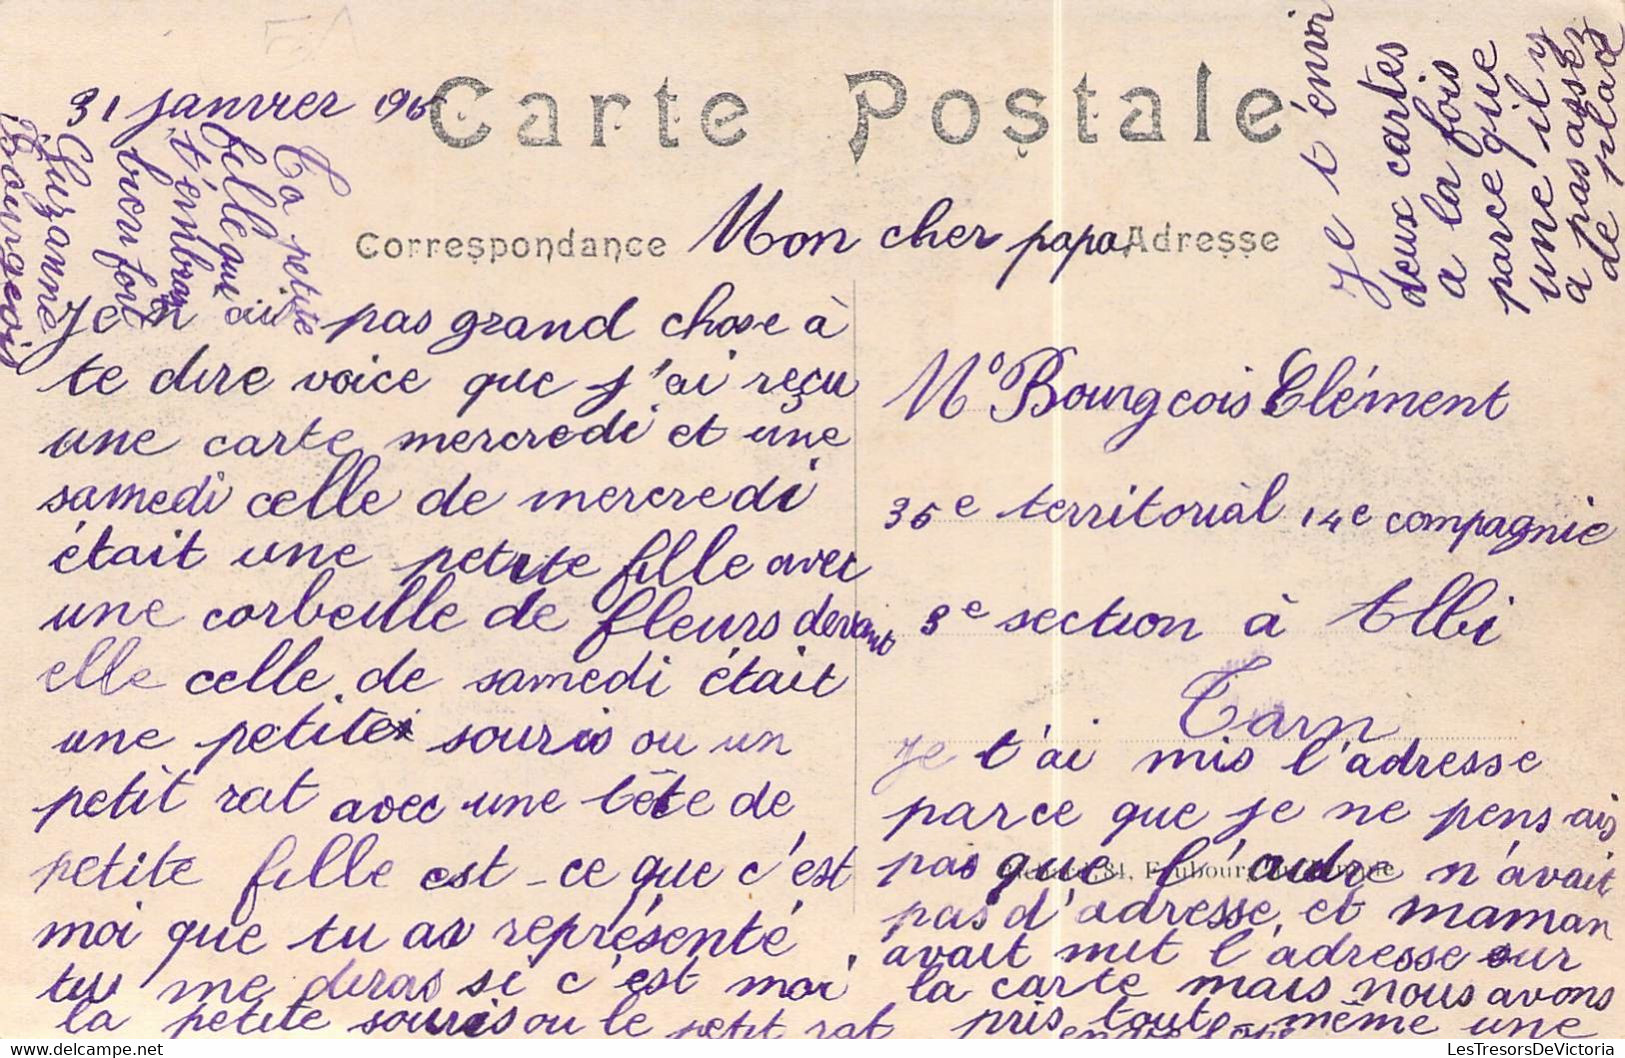 31 janvier 1915
Carte Postale
Correspondance
Adresse
Mon cher papa
Je n'ai pas grand chose à
te dire voice que j'ai reçu
une carte mercredi et une
samedi celle de mercredi
était une petite fille avec
une corbeille de fleurs devant
elle celle de samedi était
une petite souris ou un
petit rat avec une tête de
petite fille est-ce que c'est
moi que tu as représenté
tu me diras si c'est moi
la petite souris ou le petit rat
Mr Bourgeois Clément
35e territorial 14e compagnie
3e section à Albi
Tarn
Je t'ai mis l'adresse
parce que je ne pensais
pas que l'autre n'avait
pas d'adresse et maman
avait mit l'adresse sur
la carte mais nous avons
pris toute même une
Je t'envoi
deux cartes
a la fois
parce que
une il y
a pas assez
de place
Ta petite
fille qui
t'embrasse
bien fort
Suzanne
Bourgeois
LesTresorsDeVictoria